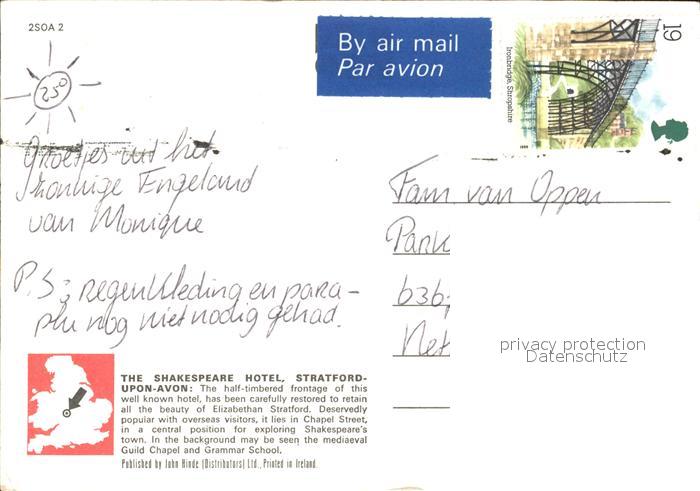 2SOA 2
By air mail
Par avion
19
Ironbridge, Shropshire
1989
25°
Groetjes uit het
zonnige Engeland
van Monique
P.S: regenkleding en para-
plu nog niet nodig gehad.
Fam van Oppen
Park
636
Net
privacy protection
Datenschutz
THE SHAKESPEARE HOTEL, STRATFORD-
UPON-AVON: The half-timbered frontage of this
well known hotel, has been carefully restored to retain
all the beauty of Elizabethan Stratford. Deservedly
popular with overseas visitors, it lies in Chapel Street,
in a central position for exploring Shakespeare's
town. In the background may be seen the mediaeval
Guild Chapel and Grammar School.
Published by John Hinde (Distributors) Ltd., Printed in Ireland.